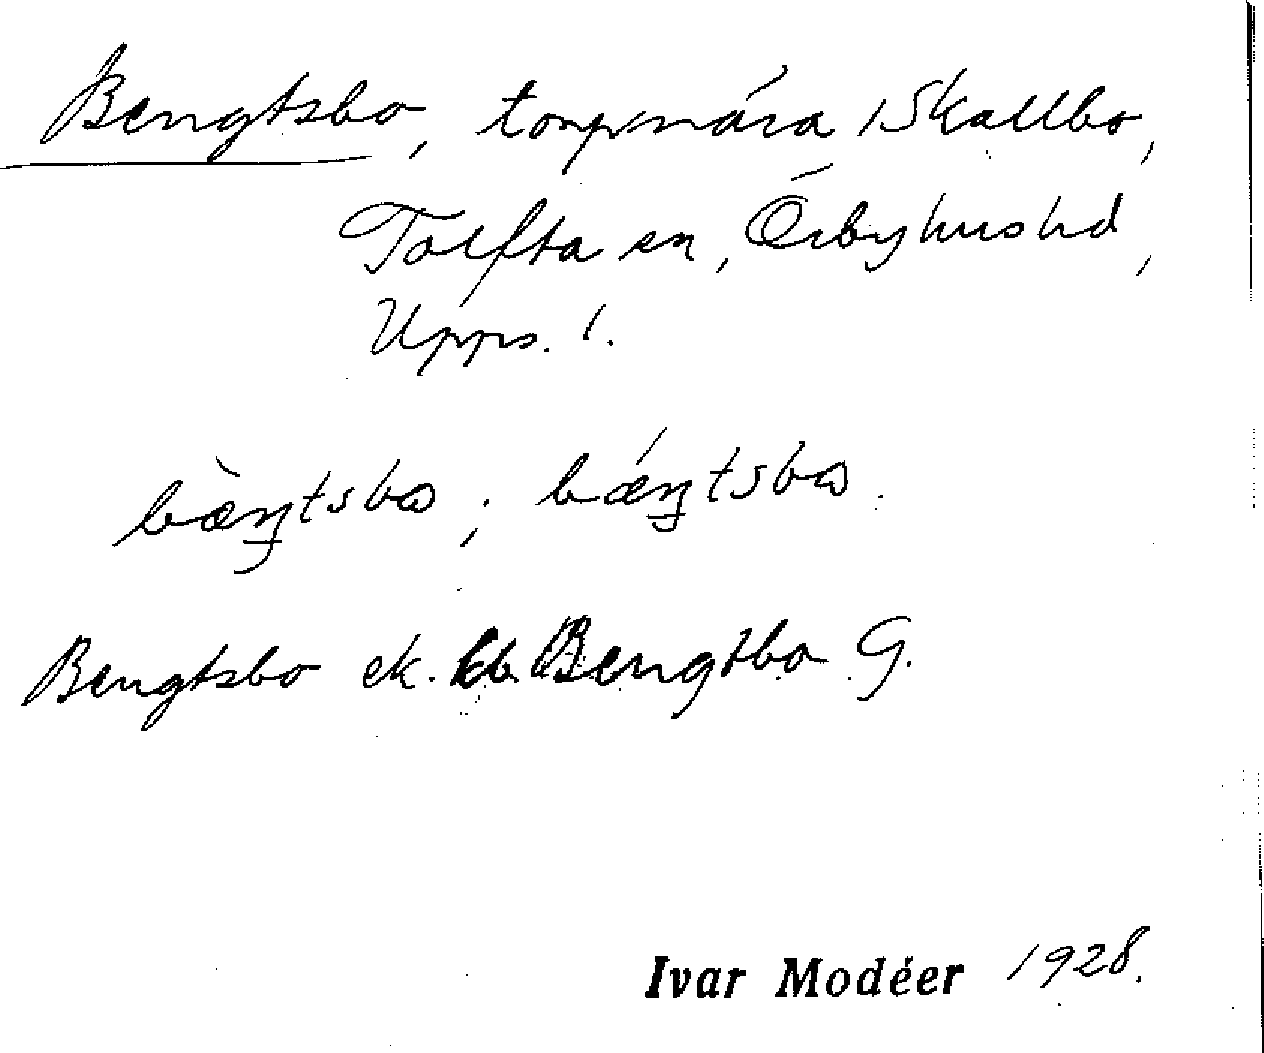 Bengtsbo, torp nära i Skallbo,
Tolfta sn, Örbyhus hd,
Upps. l.
bæ̀ŋtsbω ; bǽŋtsbω.
Bengtsbo ek. kb. Bengtbo G.
Ivar Modéer 1928.